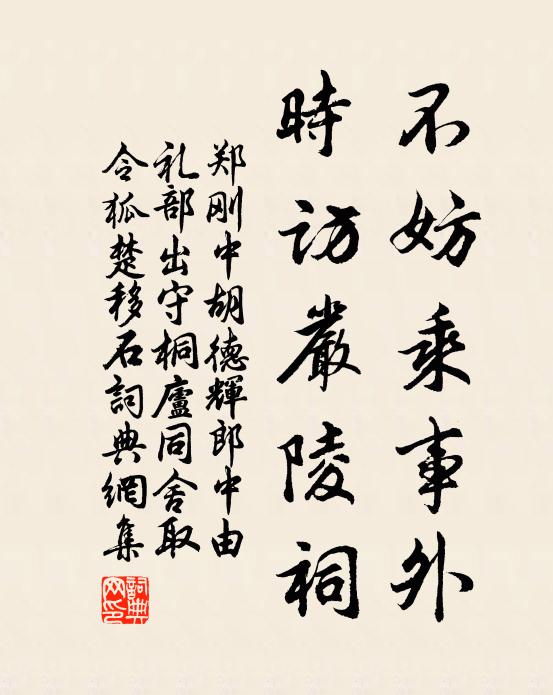 不妨乘事外
時訪嚴陵祠
郑刚中胡德輝郎中由
礼部出守桐廬同舍取
令狐楚移石詞典網集
詞典
网印